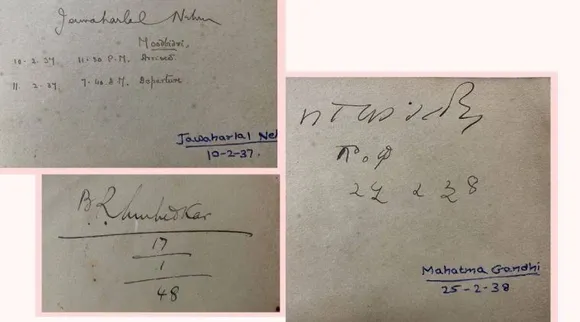 Jawaharlal Nehru
Moodbidri.
10.2.37, 11.30 P.M. Arrived
11 2.37, 7.40 A.M. Departure
Jawaharlal Neh
10-2-37.
B. R. Ambedkar
17
1
48
૨૫ ૨ ૩૮
Mahatma Gandhi
25-2-38